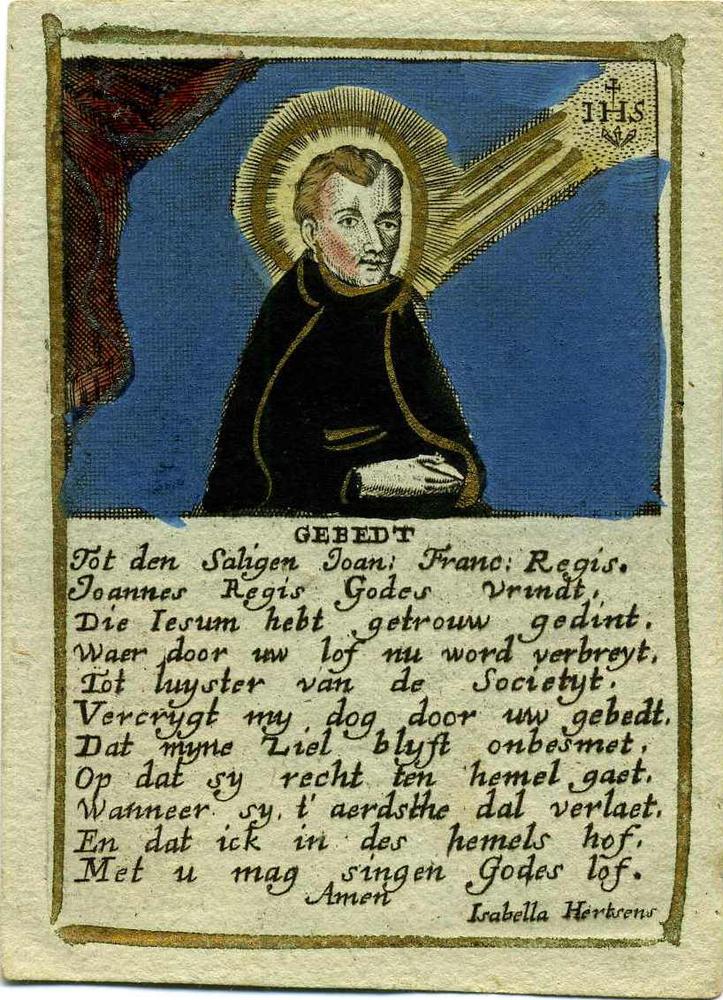 IHS
GEBEDT
Tot den Saligen Ioan: Franc: Regis.
Ioannes Regis Godes Vrindt,
Die Iesum hebt getrouw gedint.
Waer door uw lof nu word verbreyt,
Tot luyster van de Societyt.
Vercrygt my dog door uw gebedt,
Dat myne Ziel blyft onbesmet,
Op dat sy recht ten hemel gaet.
Wanneer sy, t' aerdsche dal verlaet,
En dat ick in des hemels hof,
Met u mag singen Godes lof.
Amen
Isabella Hertsens